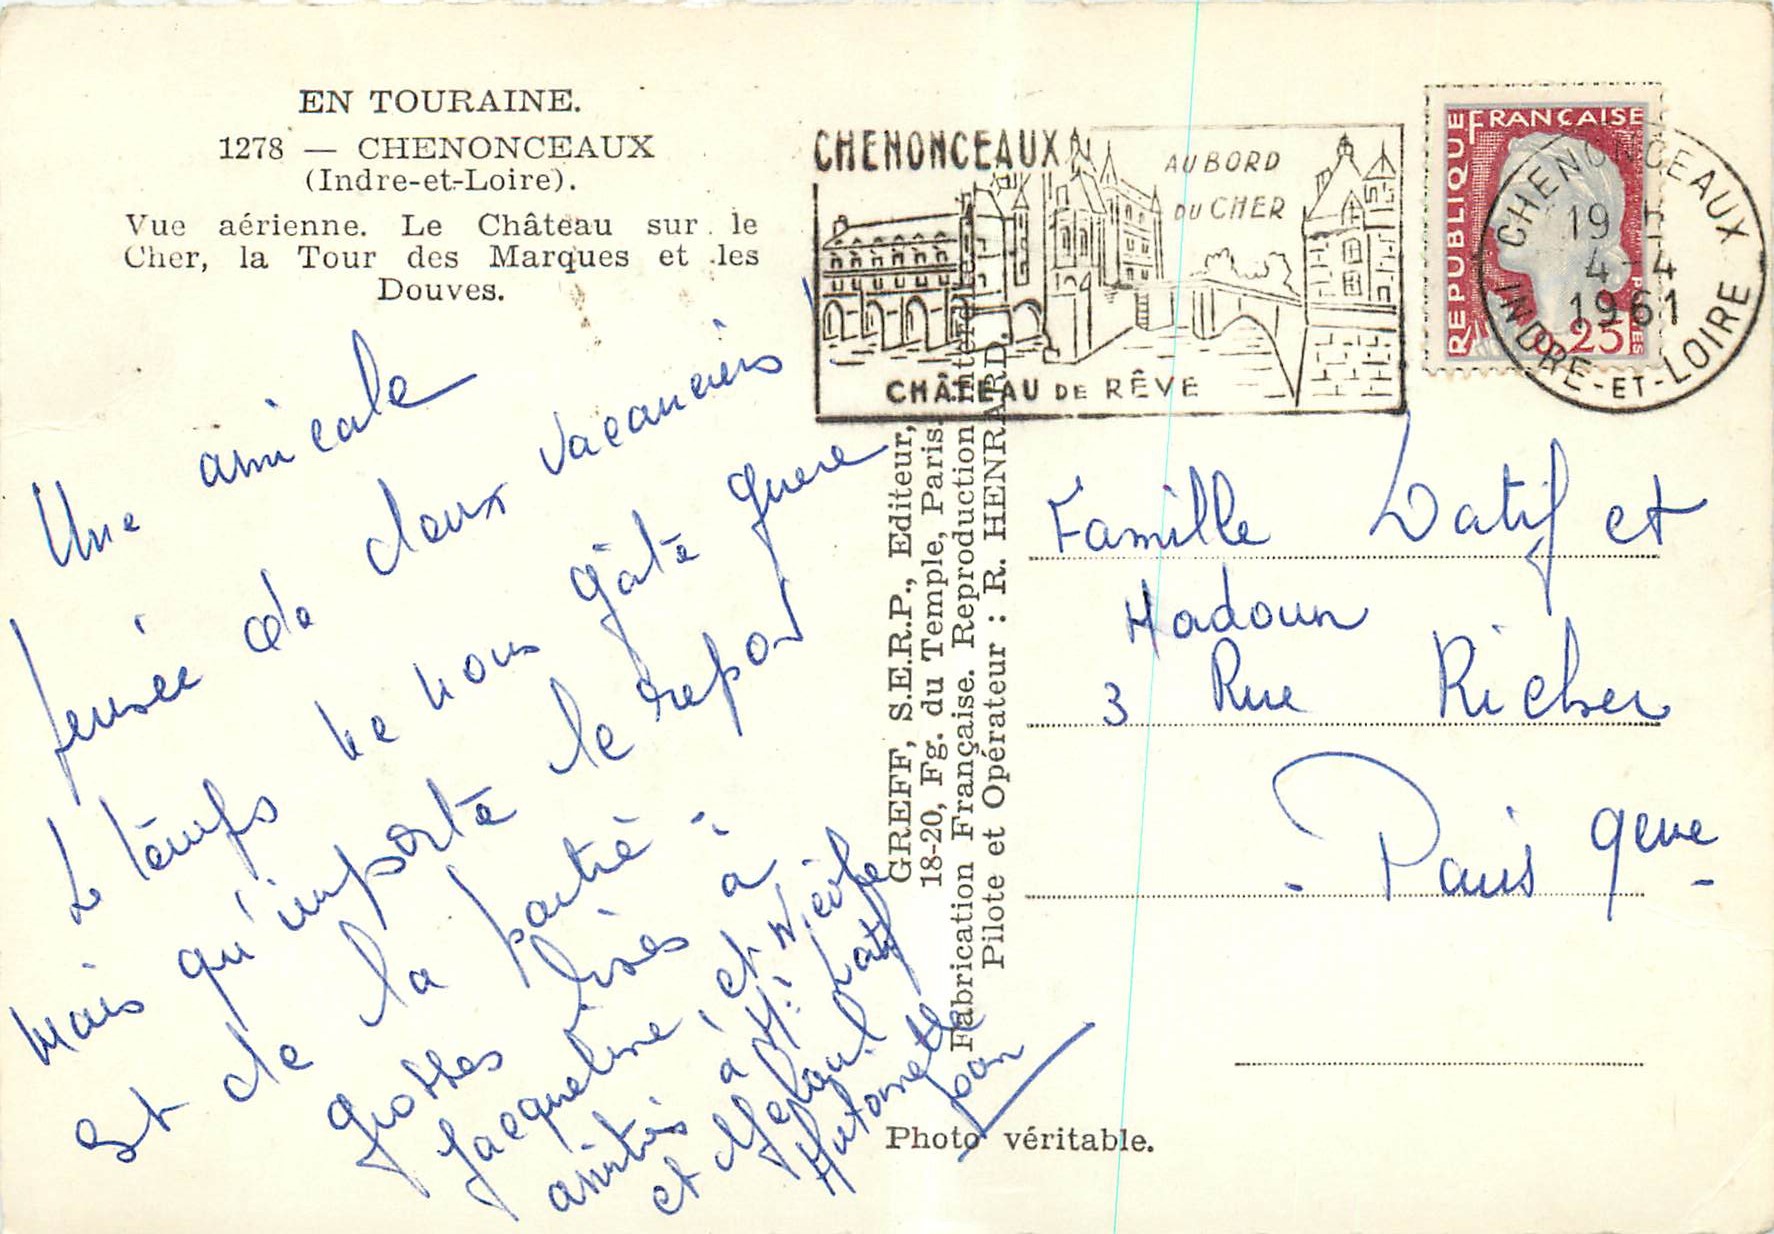 EN TOURAINE.
1278 — CHENONCEAUX
(Indre-et-Loire).
Vue aérienne. Le Château sur le
Cher, la Tour des Marques et les
Douves.
Une amicale
pensée de deux vacanciers
Le temps ne nous gâte guère
mais qu'importe le repos
est de la partie
grosses bises à
Jacqueline, et
amitiés à Mr Latif
et
Antoinette
GREFF, S.E.R.P., Editeur,
18-20, Fg. du Temple, Paris.
Fabrication Française. Reproduction interdite
Pilote et Opérateur : R. HENRARD
Photo véritable.
CHENONCEAUX
AU BORD
DU CHER
CHÂTEAU DE RÊVE
RÉPUBLIQUE FRANÇAISE
POSTES
0,25
CHENONCEAUX
19 H
4-4
1961
INDRE-ET-LOIRE
Famille Latif et
Hadoun
3 Rue Richer
Paris 9eme